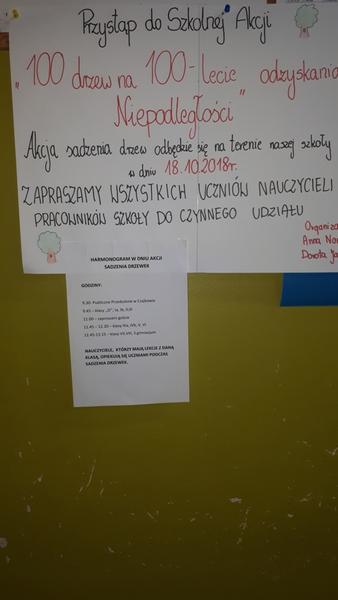 Przystąp do Szkolnej Akcji
"100 drzew na 100-lecie odzyskania
Niepodległości"
Akcja sadzenia drzew odbędzie się na terenie naszej szkoły
w dniu 18.10.2018r.
ZAPRASZAMY WSZYSTKICH UCZNIÓW NAUCZYCIELI
PRACOWNIKÓW SZKOŁY DO CZYNNEGO UDZIAŁU
Organiza
Anna Now
Dorota
HARMONOGRAM W DNIU AKCJI
SADZENIA DRZEWEK
GODZINY:
9.30- Publiczne Przedszkole w
9.45 – klasy „0”, Ia, Ib, II,III
11.00 – zaproszeni goście
11.45 – 12.30 – klasy IVa, IVb, V, VI
12.45-13.15 – klasy VII,VIII, II gimnazjum
NAUCZYCIELE, KTÓRZY MAJĄ LEKCJE Z DANĄ
KLASĄ, OPIEKUJĄ SIĘ UCZNIAMI PODCZAS
SADZENIA DRZEWEK.